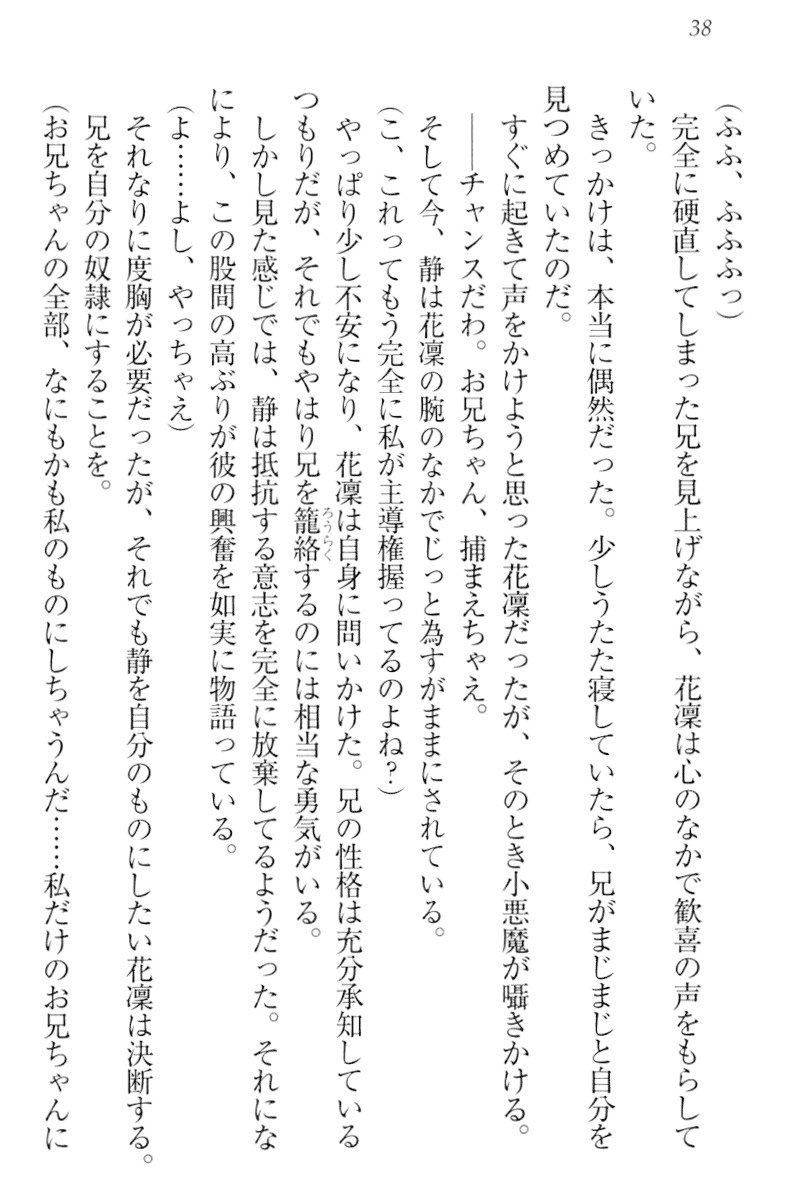 38
(ふふ、ふふふっ)
完全に硬直してしまった兄を見上げながら、花凜は心のなかで歓喜の声をもらして
いた。
きっかけは、本当に偶然だった。少しうたた寝していたら、兄がまじまじと自分を
見つめていたのだ。
すぐに起きて声をかけようと思った花凜だったが、そのとき小悪魔が囁きかける。
――チャンスだわ。お兄ちゃん、捕まえちゃえ。
そして今、静は花凜の腕のなかでじっと為すがままにされている。
(こ、これってもう完全に私が主導権握ってるのよね?)
やっぱり少し不安になり、花凜は自身に問いかけた。兄の性格は充分承知している
つもりだが、それでもやはり兄を籠絡するのには相当な勇気がいる。
ろうらく
しかし見た感じでは、静は抵抗する意志を完全に放棄してるようだった。それにな
により、この股間の高ぶりが彼の興奮を如実に物語っている。
(よ……よし、やっちゃえ)
それなりに度胸が必要だったが、それでも静を自分のものにしたい花凜は決断する。
兄を自分の奴隷にすることを。
(お兄ちゃんの全部、なにもかも私のものにしちゃうんだ……私だけのお兄ちゃんに